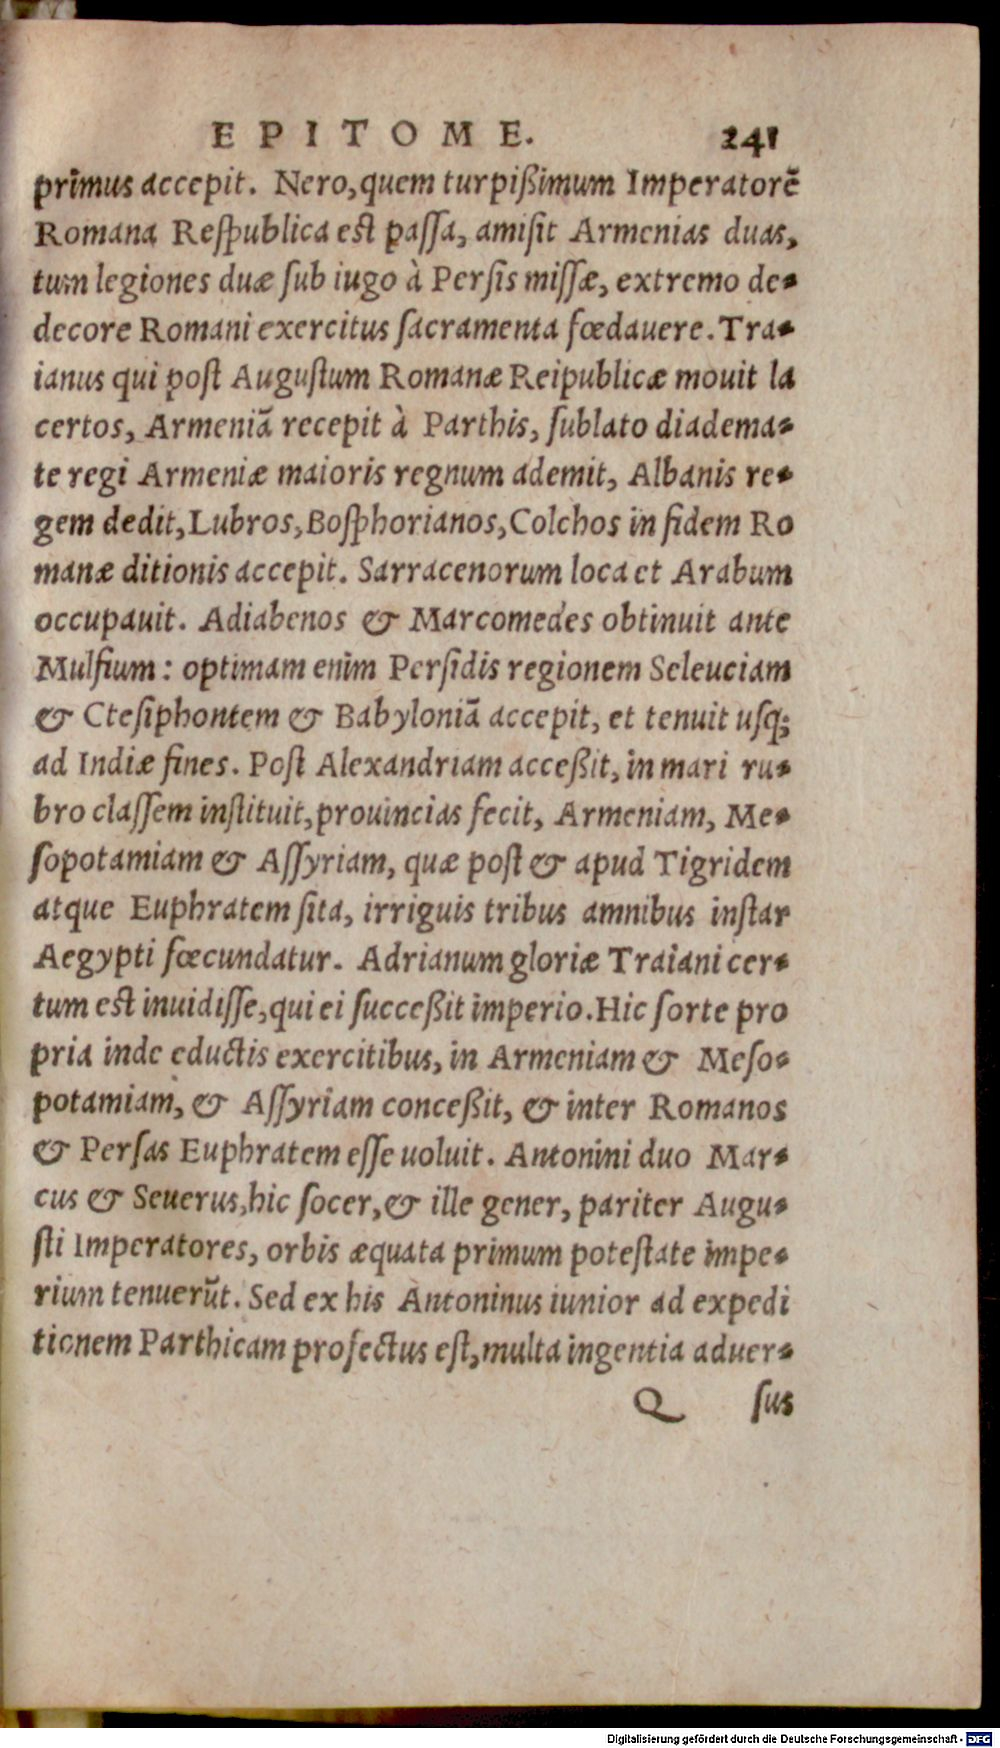 EPITOME. 241
primus accepit. Nero, quem turpißimum Imperatorẽ
Romana Reſpublica est paſſa, amiſit Armenias duas,
tum legiones duæ ſub iugo à Perſis miſſæ, extremo de-
decore Romani exercitus ſacramenta fœdauere. Tra-
ianus qui poſt Auguſtum Romanæ Reipublicæ mouit la
certos, Armeniã recepit à Parthis, ſublato diadema-
te regi Armeniæ maioris regnum ademit, Albanis re-
gem dedit, Lubros, Boſphorianos, Colchos in fidem Ro
manæ ditionis accepit. Sarracenorum loca et Arabum
occupauit. Adiabenos & Marcomedes obtinuit ante
Mulſium: optimam enim Perſidis regionem Seleuciam
& Cteſiphontem & Babyloniã accepit, et tenuit uſq;
ad Indiæ fines. Poſt Alexandriam acceßit, in mari ru-
bro claſſem inſtituit, prouincias fecit, Armeniam, Me-
ſopotamiam & Aſſyriam, quæ poſt & apud Tigridem
atque Euphratem ſita, irriguis tribus amnibus inſtar
Aegypti fœcundatur. Adrianum gloriæ Traiani cer-
tum est inuidiſſe, qui ei ſucceßit imperio. Hic ſorte pro
pria inde eductis exercitibus, in Armeniam & Meſo-
potamiam, & Aſſyriam conceßit, & inter Romanos
& Perſas Euphratem eſſe uoluit. Antonini duo Mar-
cus & Seuerus, hic ſocer, & ille gener, pariter Augu-
ſti Imperatores, orbis æquata primum poteſtate impe-
rium tenuerũt. Sed ex his Antoninus iunior ad expedi
tionem Parthicam profectus eſt, multa ingentia aduer-
Q ſus
Digitalisierung gefördert durch die Deutsche Forschungsgemeinschaft - DFG